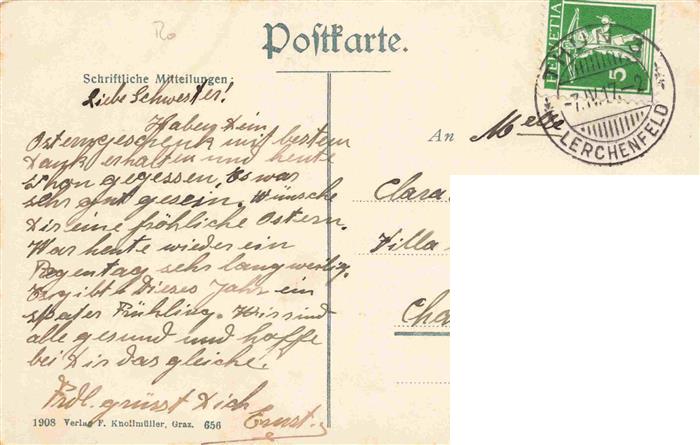 Postkarte.
Schriftliche Mitteilungen:
Liebe Schwester!
Haben Dein
Ostergeschenk mit bestem
Dank erhalten und heute
schon gegessen, Es war
sehr gut gesein. Wünsche
Dir eine fröhliche Ostern.
War heute wieder ein
Regentag sehr langweilig.
Es gibt dieses Jahr ein
später Frühling. Wir sind
alle gesund und hoffe
bei Dir das gleiche.
Frdl. grüsst Dich
Ernst.
1908 Verlag F. Knollmüller, Graz. 656
HELVETIA
5
THUN 2
-7.IV.17.-2
LERCHENFELD
An
Clara
Villa
Cha